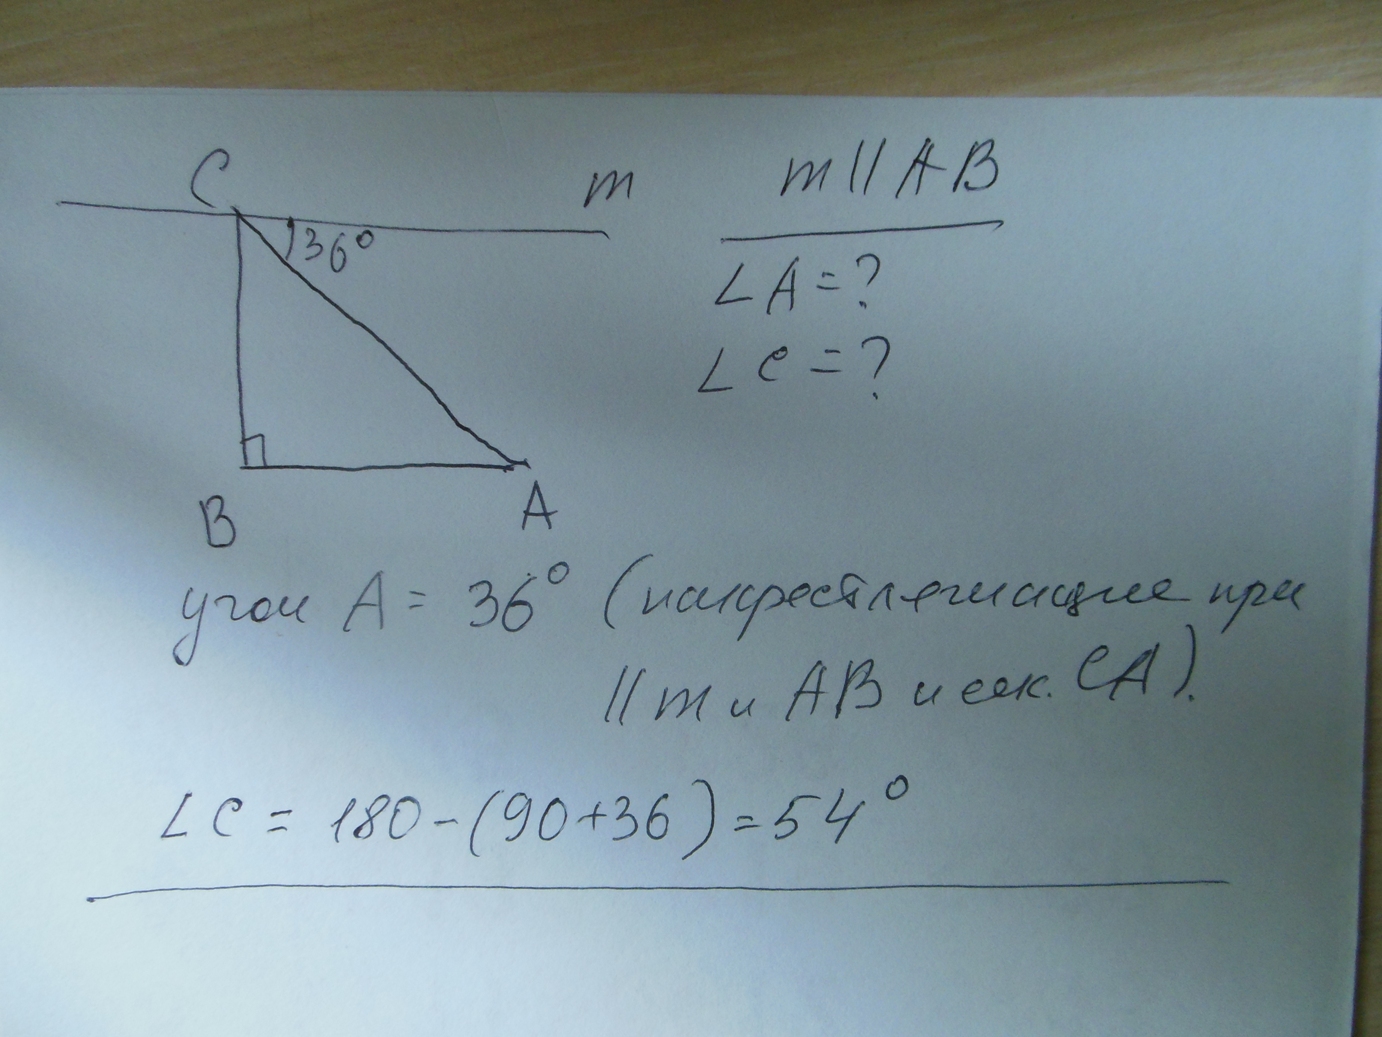 C
m
m || AB
36°
∠A = ?
∠C = ?
B
A
угол A = 36° (накрестлежащие при
|| m и AB и сек. CA).
∠C = 180 - (90+36) = 54°